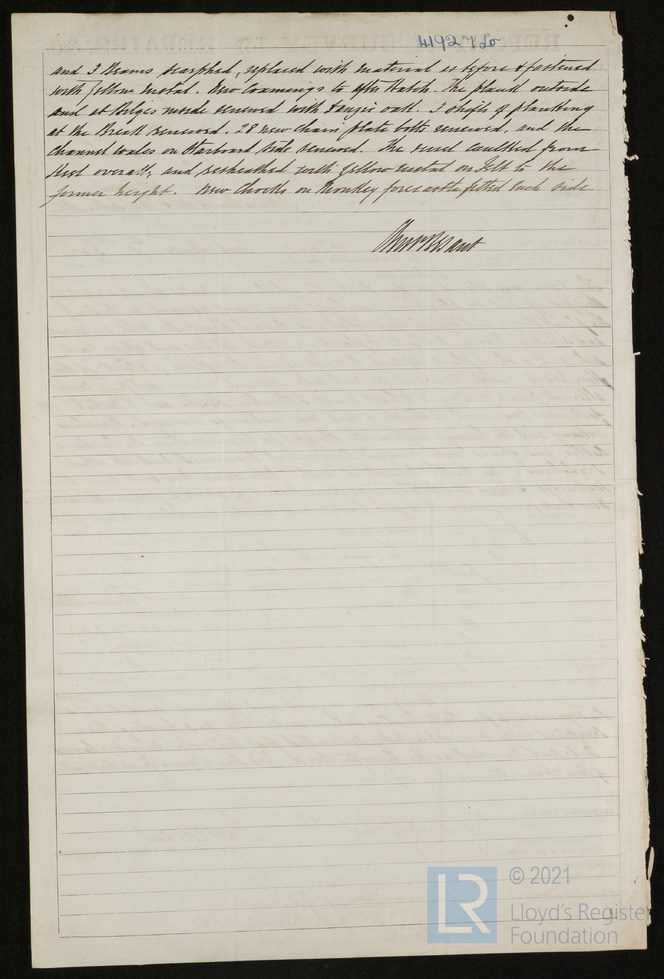 41927
and 3 Beams scarphed, replaced with material as before & fastened
with yellow metal. New Coamings to after Hatch. The plank outside
and at Bilges inside renewed with oak. 3 shifts of planking
at the Break renewed. 28 new chain plate bolts renewed, and the
Channel wales on Starboard side renewed. The vessel caulked from
keel overall, and resheathed with yellow metal on Felt to the
former height. New Chocks on Monkey forecastle fitted Each side
© 2021
LR
Lloyd's Register
Foundation